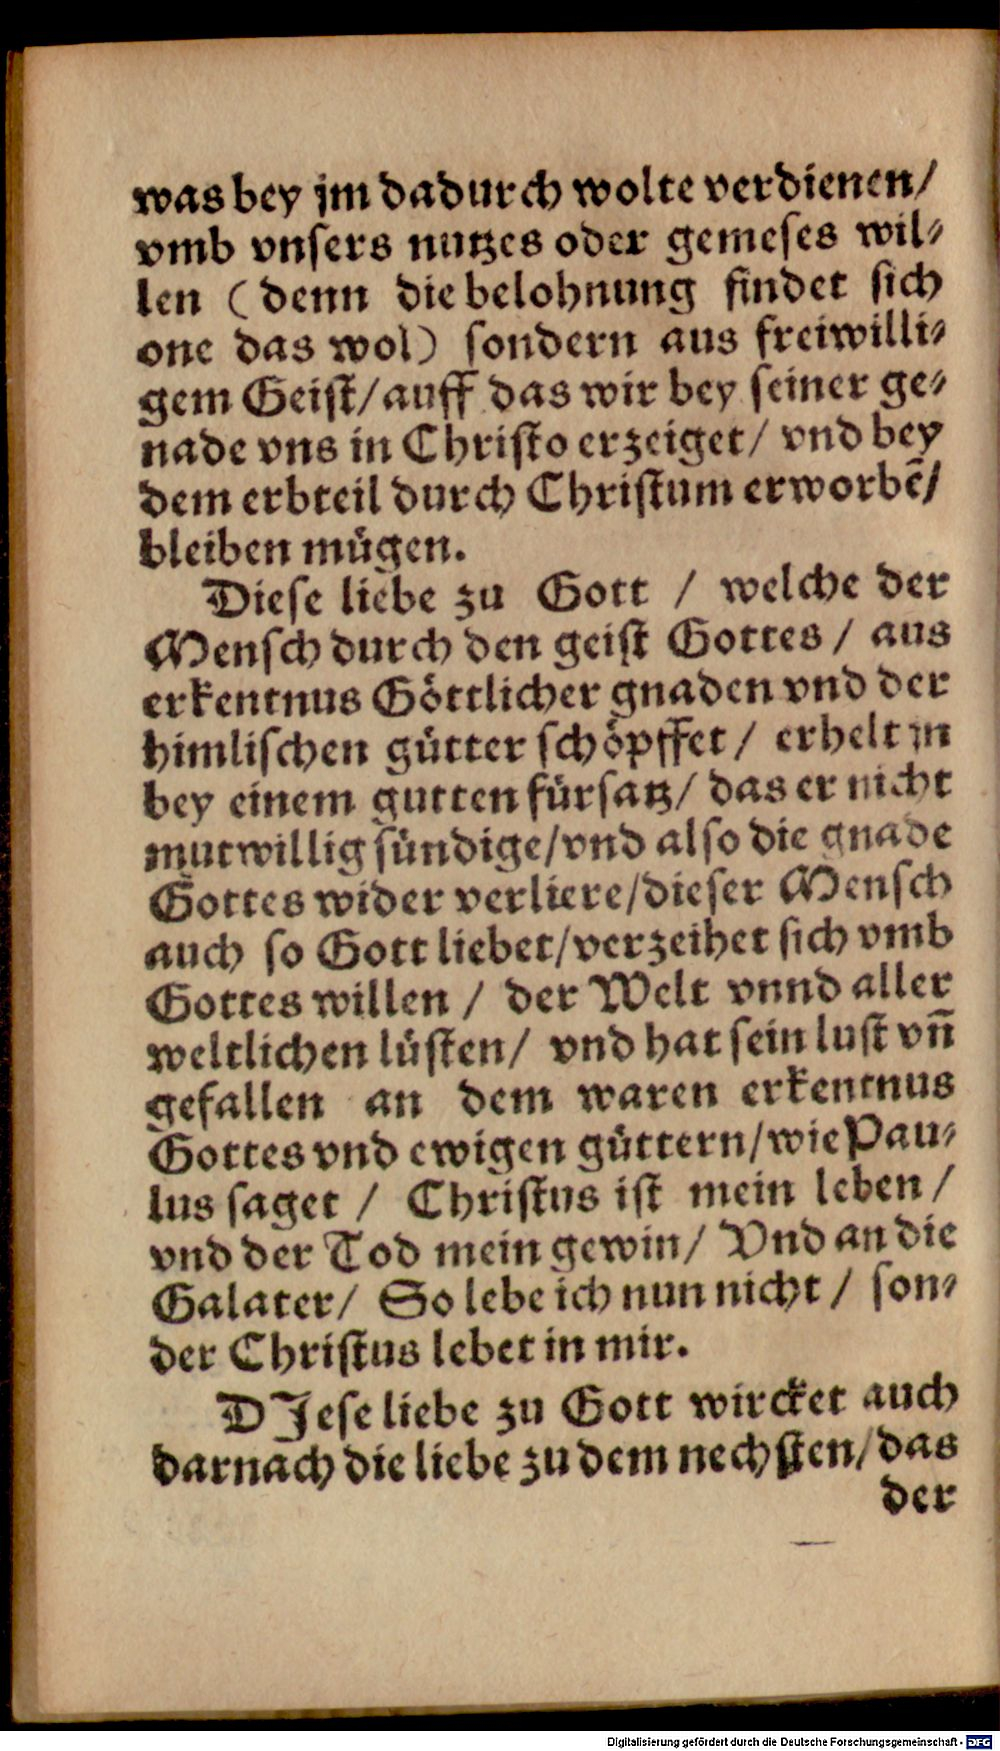 was bey jm dadurch wolte verdienen/
vmb vnsers nutzes oder gemeses wil⸗
len (denn die belohnung findet sich
one das wol) sondern aus freiwilli⸗
gem Geist/ auff das wir bey seiner ge⸗
nade vns in Christo erzeiget/ vnd bey
dem erbteil durch Christum erworbẽ/
bleiben mügen.
Diese liebe zu Gott / welche der
Mensch durch den geist Gottes / aus
erkentnus Göttlicher gnaden vnd der
himlischen gütter schöpffet / erhelt jn
bey einem gutten fürsatz/ das er nicht
mutwillig sündige/vnd also die gnade
Gottes wider verliere/dieser Mensch
auch so Gott liebet/verzeihet sich vmb
Gottes willen / der Welt vnnd aller
weltlichen lüsten/ vnd hat sein lust vn̄
gefallen an dem waren erkentnus
Gottes vnd ewigen güttern/wie Pau⸗
lus saget / Christus ist mein leben /
vnd der Tod mein gewin/ Vnd an die
Galater/ So lebe ich nun nicht / son⸗
der Christus lebet in mir.
DJese liebe zu Gott wircket auch
darnach die liebe zu dem nechsten/das
der
Digitalisierung gefördert durch die Deutsche Forschungsgemeinschaft - DFG